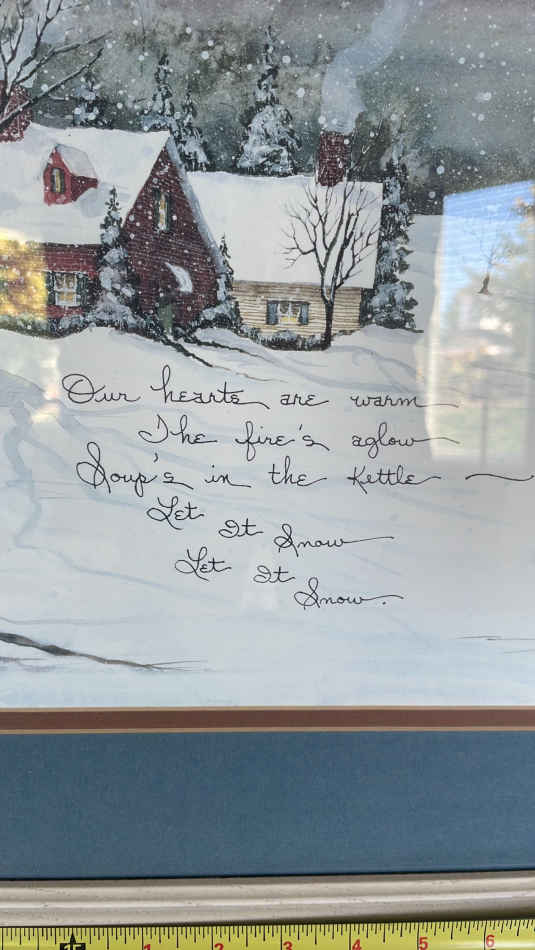 Our hearts are warm
The fire's aglow
Soup's in the Kettle —
Let It Snow
Let It Snow.
15 1 2 3 4 5 6